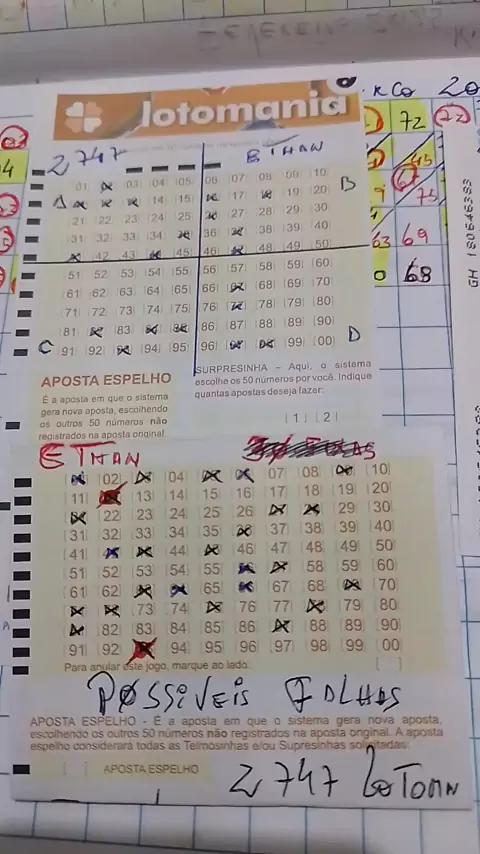 Fevereiro
RCO 20
72 72
45
9 67 75
63 69
0 68
GH 180646383
lotomania
2747 ETHAN
01 03 04 05 06 07 08 09 10
A 17 19 20 B
21 22 23 24 25 27 28 29 30
31 32 33 34 36 38 39 40
42 43 45 46 48 49 50
51 52 53 54 55 56 57 58 59 60
61 62 63 64 65 66 68 69 70
71 72 73 74 75 76 78 79 80
81 83 86 87 88 89 90
C 91 92 94 95 96 99 00 D
APOSTA ESPELHO
É a aposta em que o sistema
gera nova aposta, escolhendo
os outros 50 números não
registrados na aposta original
SURPRESINHA – Aqui, o sistema
escolhe os 50 números por você. Indique
quantas apostas deseja fazer:
1 2
ETHAN
02 04 07 08 10
11 13 14 15 16 17 18 19 20
22 23 24 25 26 29 30
31 32 33 34 35 37 38 39 40
41 44 46 47 48 49 50
51 52 53 54 55 58 59 60
61 62 65 67 68 70
73 74 76 77 79 80
82 83 84 85 86 88 89 90
91 92 94 95 96 97 98 99 00
Para anular este jogo, marque ao lado:
POSSIVEIS FOLHAS
APOSTA ESPELHO - É a aposta em que o sistema gera nova aposta,
escolhendo os outros 50 números não registrados na aposta original. A aposta
espelho considerará todas as Teimosinhas e/ou Surpresinhas solicitadas:
APOSTA ESPELHO
2747 LOTOMN